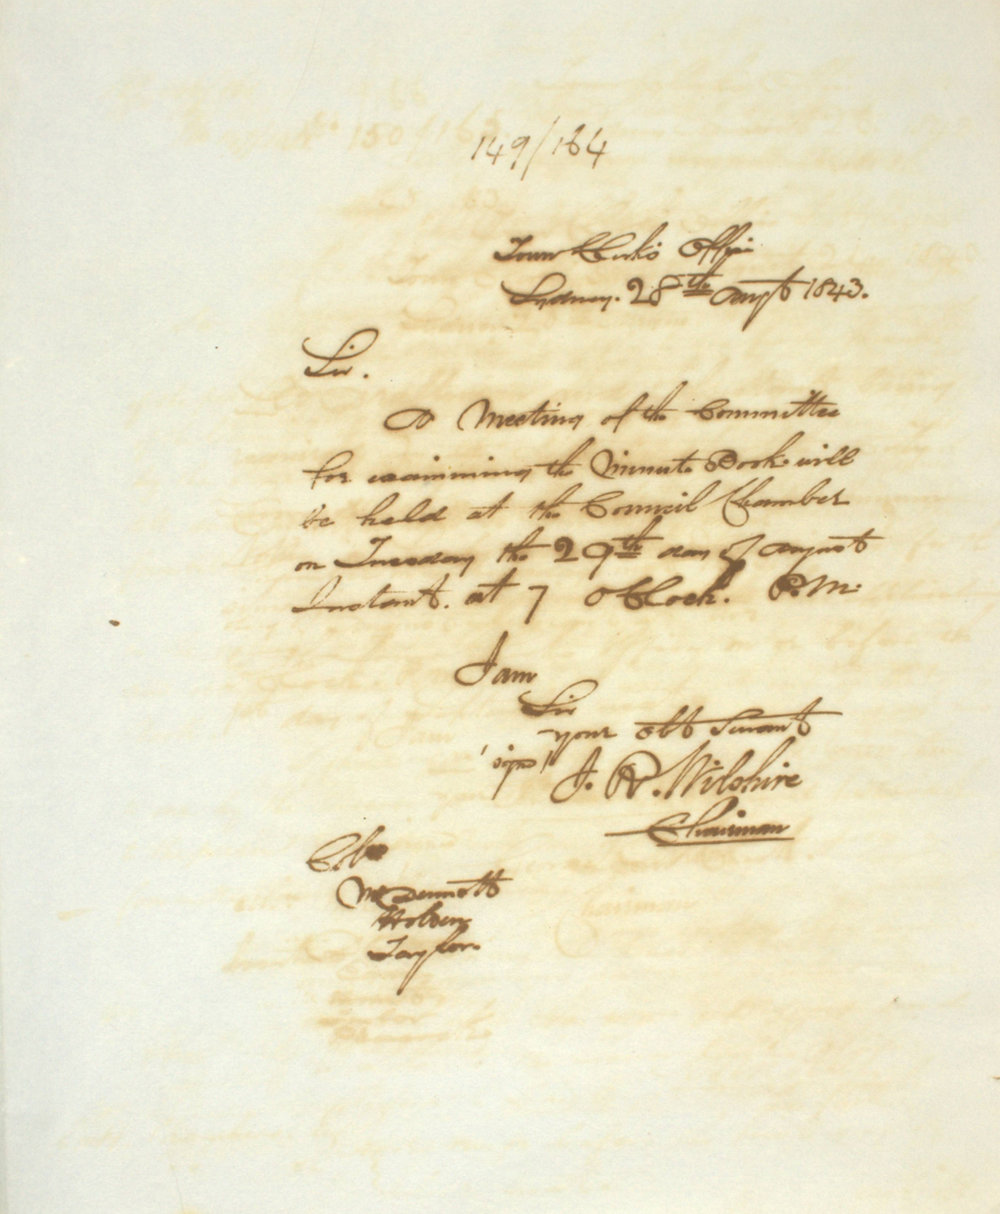 149/184
Town Clerk's Office
Sydney. 28th Augst 1843.
Sir.
A Meeting of the Committee
for examining the Minute Book will
be held at the Council Chamber
on Tuesday the 29th day of August
Instant. at 7 O'Clock. P.M.
I am
Sir
your obt Servant
(signed) J. R. Wilshire
Chairman
McDermott
Holden
Taylor.